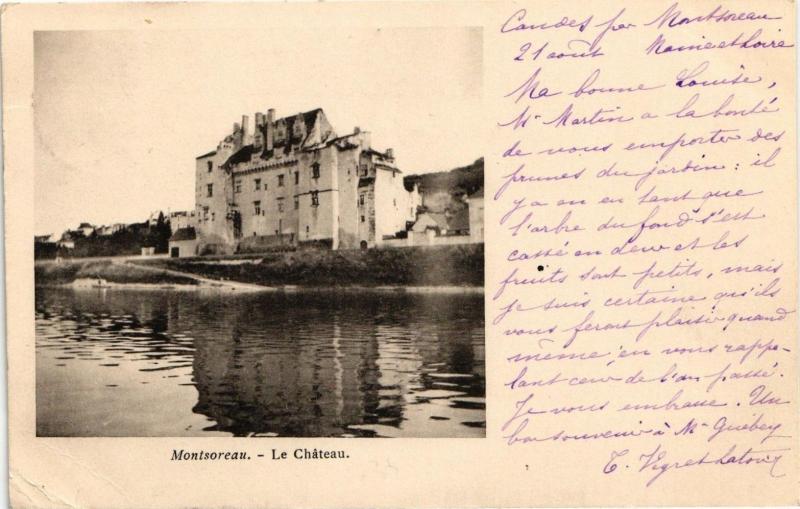 Candes par Montsoreau
21 août Maine et Loire
Ma bonne Louise,
Mr Martin a la bonté
de vous emporter des
prunes du jardin : il
y a en tant que
l'arbre du fond s'est
cassé en deux et les
fruits sont petits, mais
je suis certaine qu'ils
vous feront plaisir quand
même, en vous rappe-
lant ceux de l'an passé.
Je vous embrasse. Un
bon souvenir à Mr Guébey
Montsoreau. - Le Château.